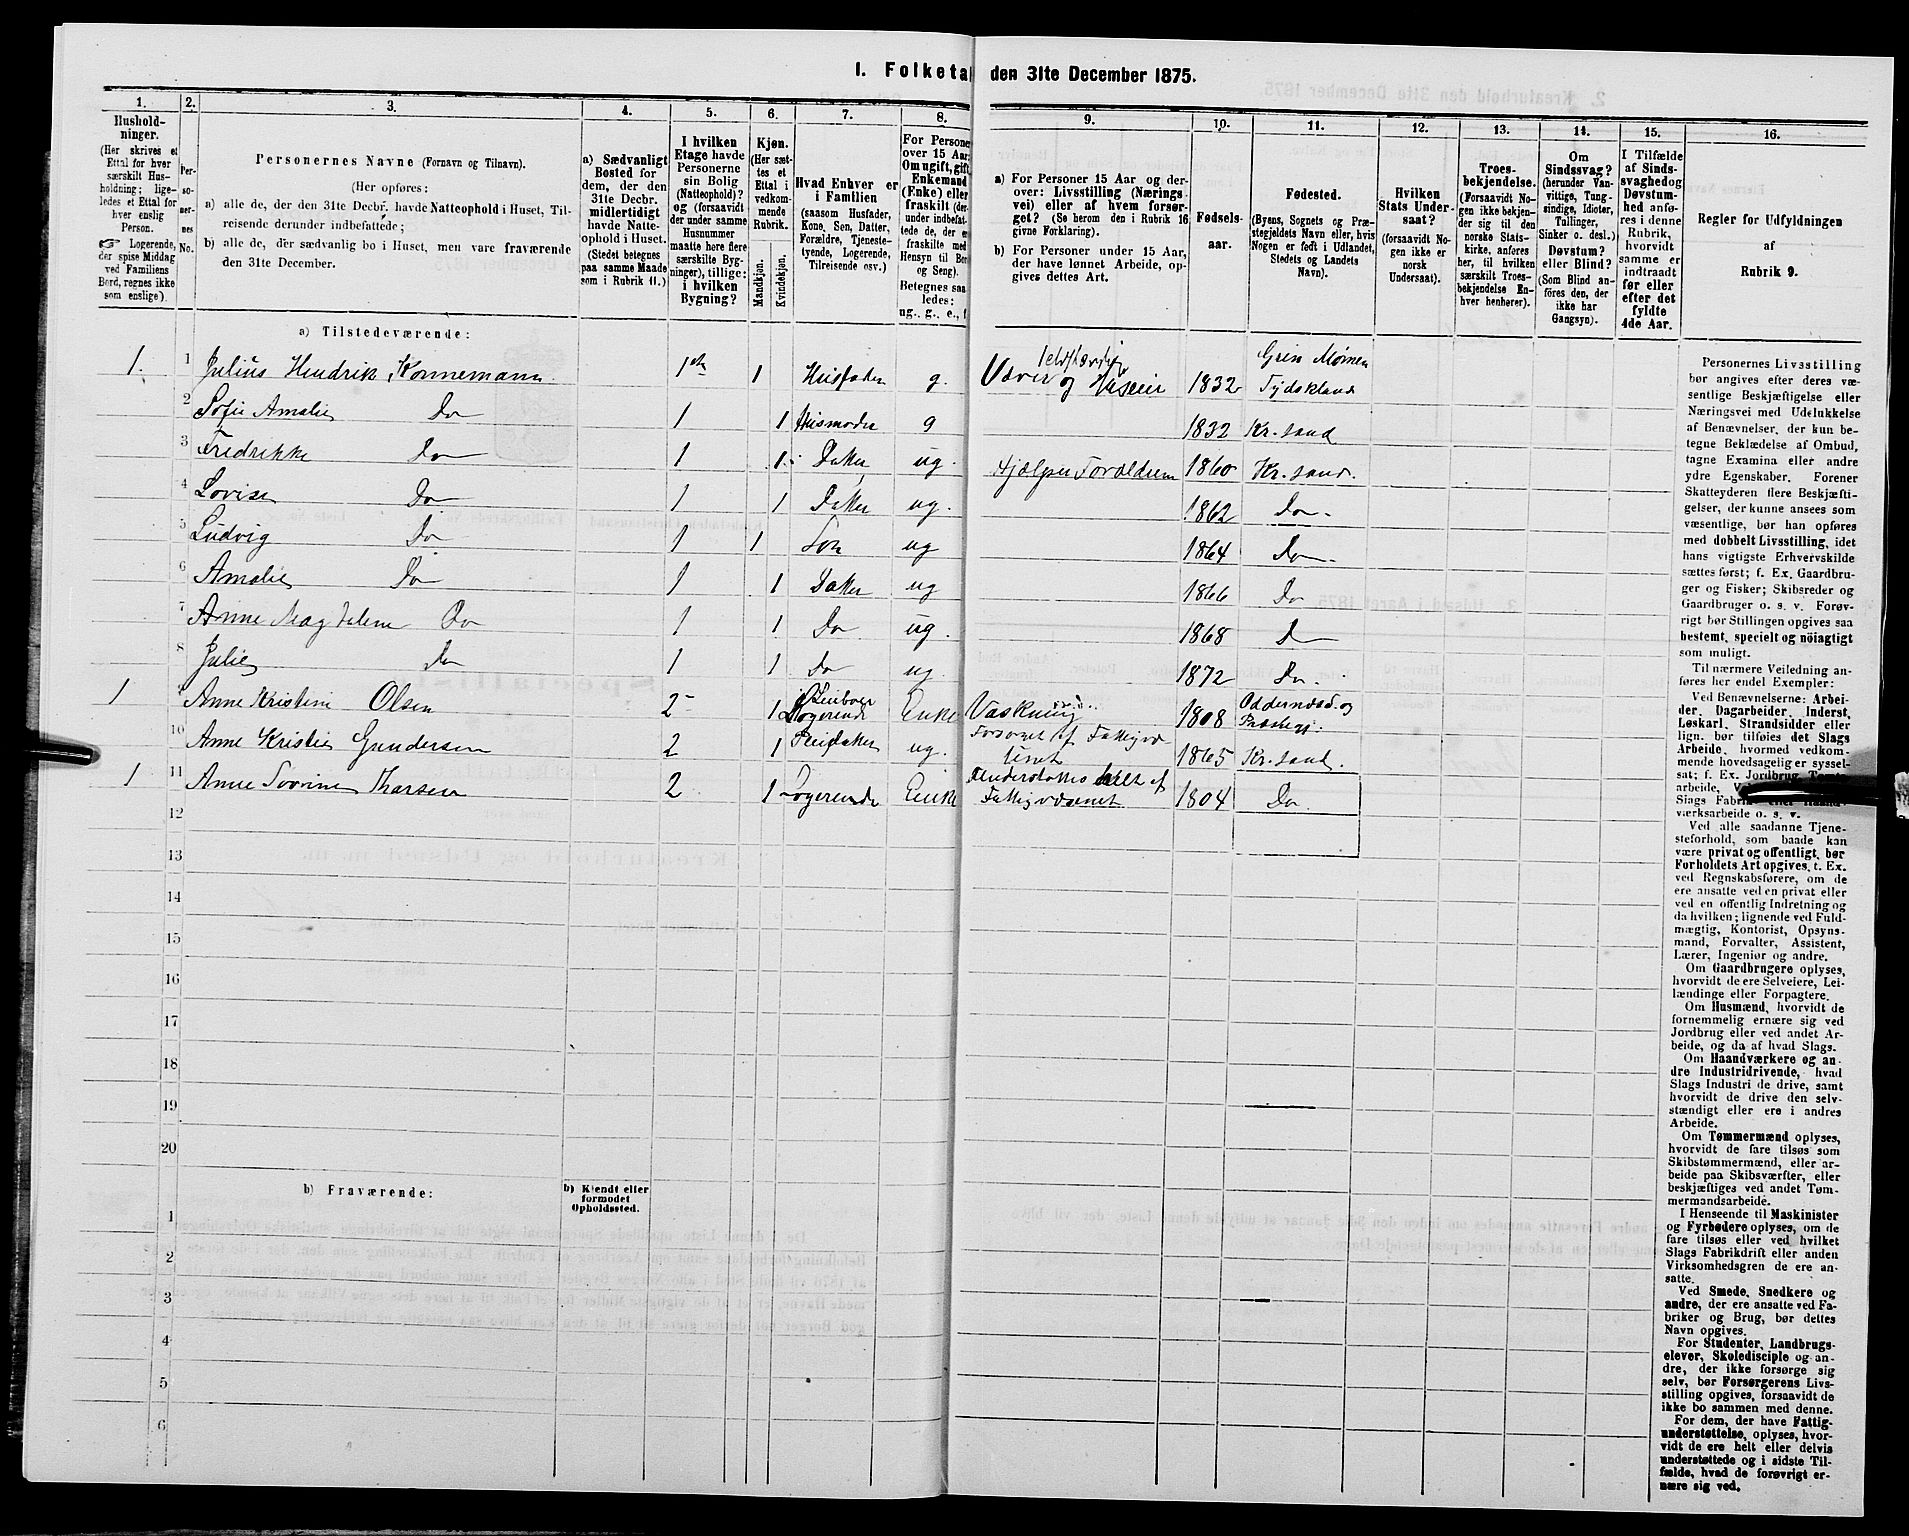 I. Folketal den 31te December 1875.
1.
2.
3.
4.
5.
6.
7.
8.
9.
10.
11.
12.
13.
14.
15.
16.
Hushold-
ninger.
(Her skrives et
Ettal for hver
særskilt Hus-
holdning; lige-
ledes et Ettal for
hver enslig
Person.
☞ Logerende,
der spise Middag
ved Familiens
Bord, regnes ikke
som enslige).
Per-
so-
ner-
nes
No.
Personernes Navne (Fornavn og Tilnavn).
(Her opføres:
a) alle de, der den 31te Decbr. havde Natteophold i Huset, Til-
reisende derunder indbefattede;
b) alle de, der sædvanlig bo i Huset, men vare fraværende
den 31te December.
a) Sædvanligt
Bosted for
dem, der den
31te Decbr.
midlertidigt
havde Natte-
ophold i Huset.
(Stedet betegnes
paa samme Maade
som i Rubrik 11.)
I hvilken
Etage havde
Personerne
sin Bolig
(Natteophold)?
og (forsaavidt
der under samme
Husnummer
maatte høre flere
særskilte Byg-
ninger), tillige:
i hvilken
Bygning?
Kjøn.
(Her sæt-
tes et
Ettal i
vedkom-
mende
Rubrik.
Mandkjøn.
Kvindekjøn.
Hvad Enhver er
i Familien
(saasom Husfader,
Kone, Søn, Datter,
Forældre, Tjeneste-
tyende, Logerende,
Tilreisende osv.)
For Personer
over 15 Aar:
Om ugift, gift,
Enkemand
(Enke) eller
fraskilt (der-
under indbefat-
tede de, der ere
fraskilte med
Hensyn til Bord
og Seng).
Betegnes saa-
ledes:
ug., g., e., f.
a) For Personer 15 Aar og der-
over: Livsstilling (Nærings-
vei) eller af hvem forsør-
get? (Se herom den i Rubrik 16
givne Forklaring).
b) For Personer under 15 Aar,
der have lønnet Arbeide, op-
gives dettes Art.
Fødsels-
aar.
Fødested.
(Byens, Sognets og Præ-
stegjeldets Navn eller, hvis
Nogen er født i Udlandet,
Stedets og Landets
Navn).
Hvilken
Stats Under-
saat?
(forsaavidt No-
gen ikke er
norsk
Undersaat).
Troes-
bekjendelse.
(Forsaavidt No-
gen ikke bekjen-
der sig til den
norske Stats-
kirke, anføres
her, til hvilken
særskilt Troes-
bekjendelse En-
hver henhører).
Om
Sindssvag?
(herunder Van-
vittige, Tung-
sindige, Idioter,
Tullinger,
Sinker o. desl.)
Døvstum?
eller Blind?
(Som Blind an-
føres den, der
ikke har
Gangsyn).
I Tilfælde
af Sinds-
svaghed og
Døvstum-
hed anfø-
res i denne
Rubrik,
hvorvidt
samme er
indtraadt
før eller
efter det
fyldte
4de Aar.
Regler for Udfyldningen
af
Rubrik 9.
a) Tilstedeværende:
1. 1 Julius Hendrik Konnemann 1 1 Husfader g. Væver og Huseier 1832 Tydskland
2 Sofie Amalie Do 1 1 Husmoder g 1832 Kr.sand
3 Fredrikke Do 1 1 Datter ug. Hjælper Foraldrene 1860 Kr.sand.
4 Lovise Do 1 1 Datter ug. 1862 Do.
5 Ludvig Do 1 1 Søn ug 1864 Do.
6 Amalie Do 1 1 Datter ug 1866 Do
7 Anne Magdalene Do 1 1 Do ug. 1868 Do
8 Julie Do 1 1 Do ug 1872 Do.
1 9 Anne Kristine Olsen 2 1 Logerende Enke Vaskning 1808
10 Anne Kristie Gundersen 2 1 ug. 1865 Kr.sand.
1 11 Anne Tarsen 2 1 Logerende Enke Understøttes helt af Fattigvæsenet 1804 Do
12
13
14
15
16
17
18
19
20
b) Fraværende:
b) Kjendt eller
formodet
Opholdssted.
1
2
3
4
5
6
Personernes Livsstilling
bør angives efter deres væ-
sentlige Beskjæftigelse eller
Næringsvei med Udelukkelse
af Benævnelser, der kun be-
tegne Beklædelse af Ombud,
tagne Examina eller andre
ydre Egenskaber. Forener
Skatteyderen flere Beskjæfti-
gelser, der kunne ansees som
væsentlige, bør han opføres
med dobbelt Livsstilling, idet
hans vigtigste Erhvervskilde
sættes først; f. Ex. Gaardbru-
ger og Fisker; Skibsreder og
Gaardbruger o. s. v. Forøv-
rigt bør Stillingen opgives saa
bestemt, specielt og nöiagtigt
som muligt.
Til nærmere Veiledning an-
føres her endel Exempler:
Ved Benævnelserne: Arbei-
der, Dagarbeider, Inderst,
Løskarl, Strandsidder eller
lign. bør tilføies det Slags
Arbeide, hvormed vedkom-
mende hovedsagelig er syssel-
sat; f. Ex. Jordbrug, Tomte-
arbeide,
Slags Fabrik- eller Haand-
værksarbeide o. s. v.
Ved alle saadanne Tjene-
steforhold, som baade kan
være privat og offentligt, bør
Forholdets Art opgives, t. Ex.
ved Regnskabsførere, om de
ere ansatte ved en privat eller
ved en offentlig Indretning og
da hvilken; lignende ved Fuld-
mægtig, Kontorist, Opsyns-
mand, Forvalter, Assistent,
Lærer, Ingeniør og andre.
Om Gaardbrugere oplyses,
hvorvidt de ere Selveiere, Lei-
lændinge eller Forpagtere.
Om Husmænd, hvorvidt de
fornemmelig ernære sig ved
Jordbrug eller ved andet Ar-
beide, og da af hvad Slags.
Om Haandværkere og an-
dre Industridrivende, hvad
Slags Industri de drive, samt
hvorvidt de drive den selv-
stændigt eller ere i andres
Arbeide.
Om Tømmermænd oplyses,
hvorvidt de fare tilsøs som
Skibstømmermænd, eller ar-
beide paa Skibsværfter, eller
beskjæftiges ved andet Tøm-
mermandsarbeide.
I Henseende til Maskinister
og Fyrbødere oplyses, om de
fare tilsøs eller ved hvilket
Slags Fabrikdrift eller anden
Virksomhedsgren de ere an-
satte.
Ved Smede, Snedkere og
andre, der ere ansatte ved Fa-
briker og Brug, bør dettes
Navn opgives.
For Studenter, Landbrugs-
elever, Skoledisciple og an-
dre, der ikke forsørge sig
selv, bør Forsørgerens Livs-
stilling opgives, forsaavidt de
ikke bo sammen med denne.
For dem, der have Fattig-
understøttelse, oplyses, hvor-
vidt de ere helt eller delvis
understøttede og i sidste Til-
fælde, hvad de forøvrigt er-
nære sig ved.